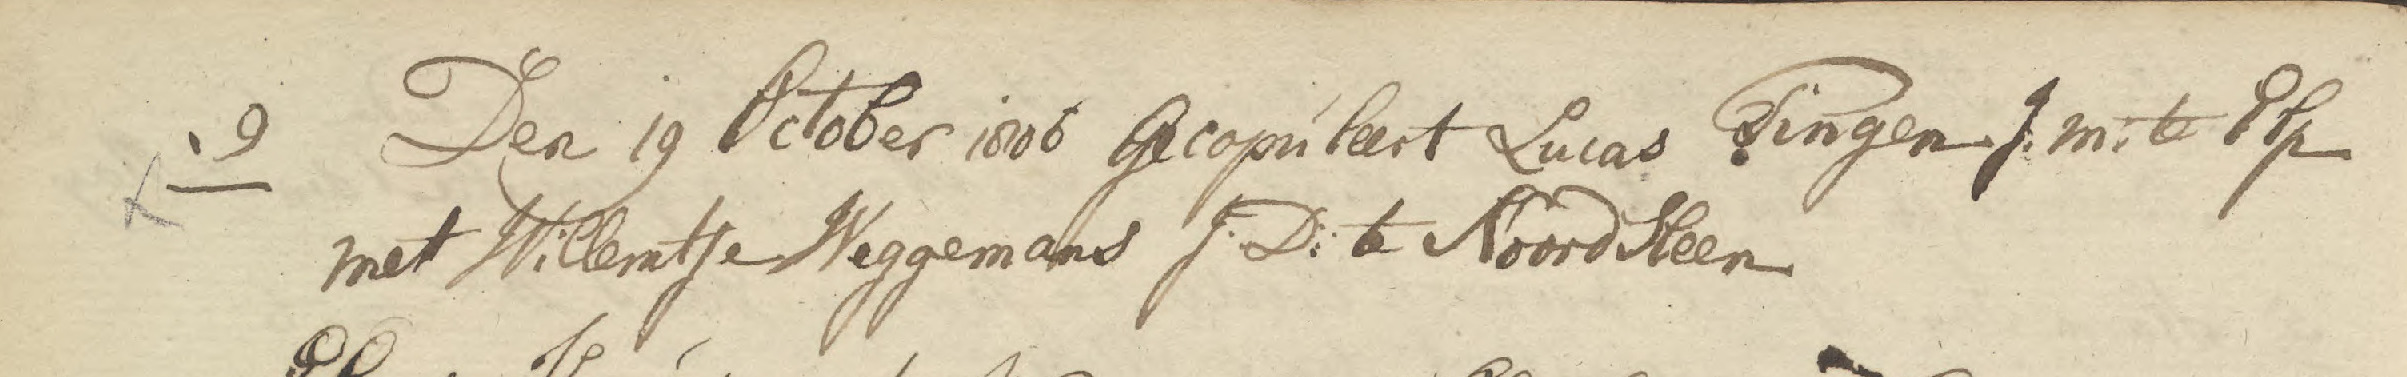 9 Den 19 October 1806 Gecopuleert Lucas Tingen J: m: te
met Willemtje Weggemans J: D: te Noordsleen